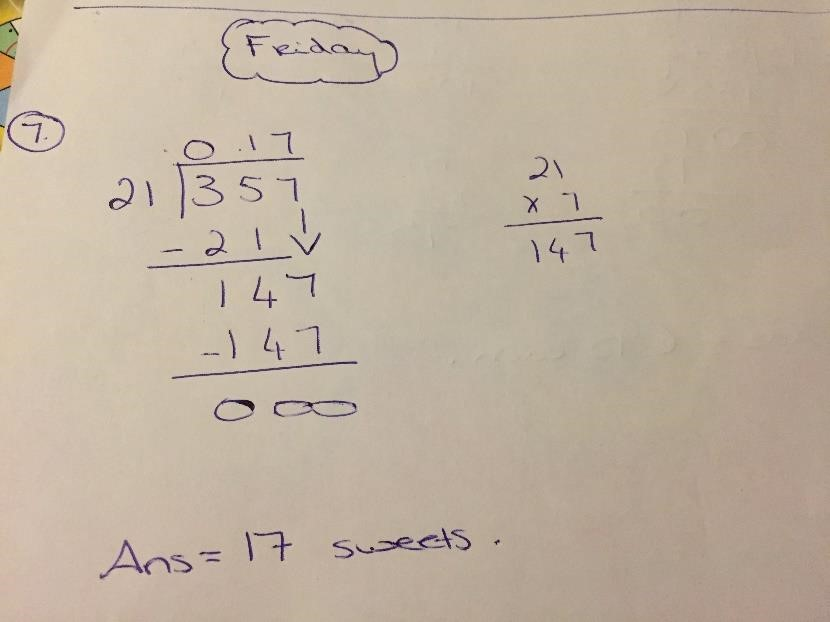 Friday
7.
0 .17
21 357
- 21
147
-147
000
21
x 7
147
Ans = 17 sweets.